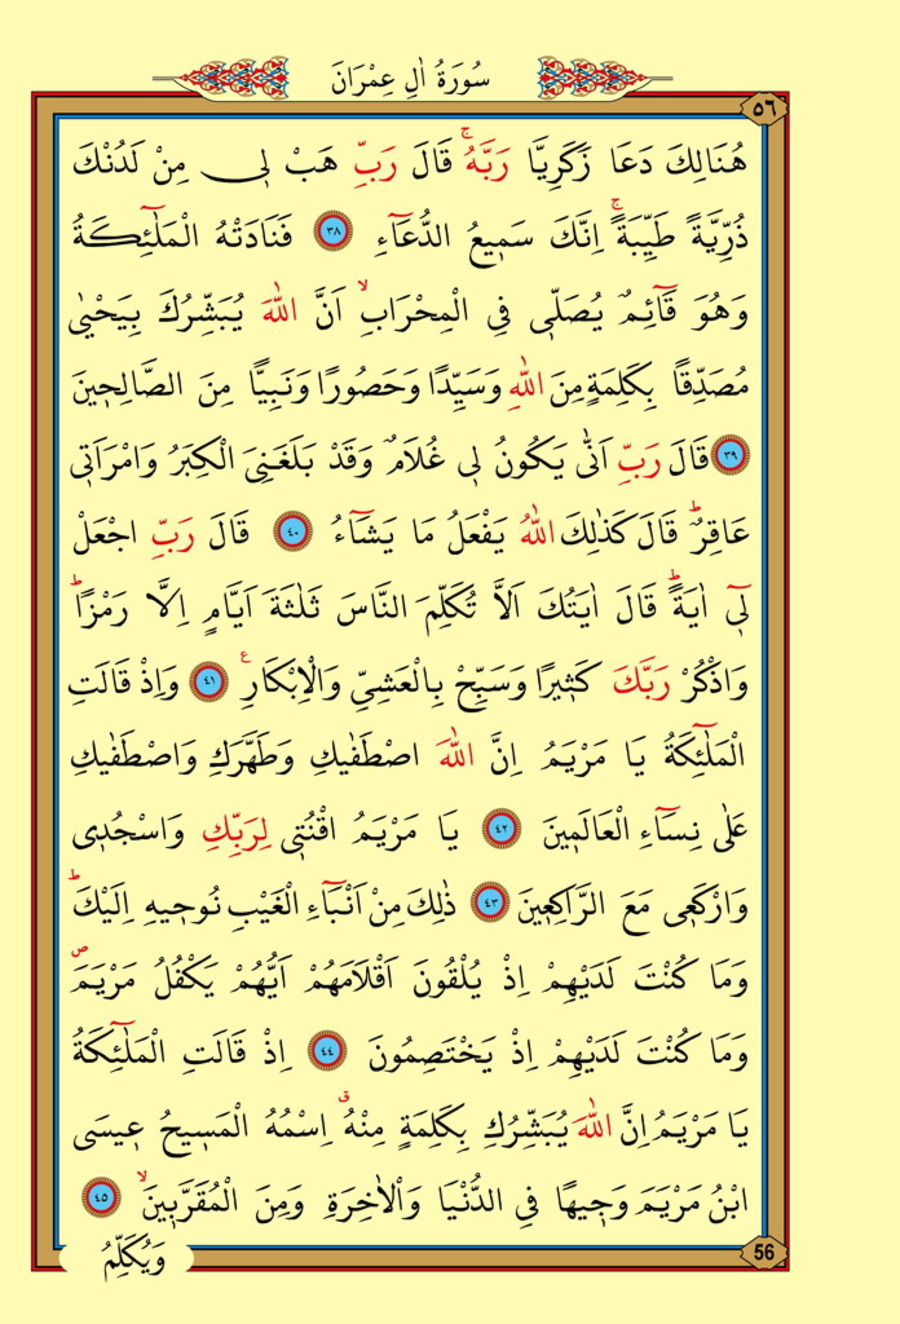 سُورَةُ اٰلِ عِمْرٰنَ
٥٦
هُنَالِكَ دَعَا زَكَرِيَّا رَبَّهُۚ قَالَ رَبِّ هَبْ ل۪ي مِنْ لَدُنْكَ
ذُرِّيَّةً طَيِّبَةًۚ اِنَّكَ سَم۪يعُ الدُّعَٓاءِ ﴿٣٨﴾ فَنَادَتْهُ الْمَلٰٓئِكَةُ
وَهُوَ قَٓائِمٌ يُصَلّ۪ي فِي الْمِحْرَابِۙ اَنَّ اللّٰهَ يُبَشِّرُكَ بِيَحْيٰى
مُصَدِّقاً بِكَلِمَةٍ مِنَ اللّٰهِ وَسَيِّدًا وَحَصُورًا وَنَبِيًّا مِنَ الصَّالِح۪ينَ
﴿٣٩﴾ قَالَ رَبِّ اَنّٰى يَكُونُ ل۪ي غُلَامٌ وَقَدْ بَلَغَنِيَ الْكِبَرُ وَامْرَاَت۪ي
عَاقِرٌۜ قَالَ كَذٰلِكَ اللّٰهُ يَفْعَلُ مَا يَشَٓاءُ ﴿٤٠﴾ قَالَ رَبِّ اجْعَلْ
ل۪ٓي اٰيَةًۜ قَالَ اٰيَتُكَ اَلَّا تُكَلِّمَ النَّاسَ ثَلٰثَةَ اَيَّامٍ اِلَّا رَمْزًاۜ
وَاذْكُرْ رَبَّكَ كَث۪يرًا وَسَبِّحْ بِالْعَشِيِّ وَالْاِبْكَارِ۟ ﴿٤١﴾ وَاِذْ قَالَتِ
الْمَلٰٓئِكَةُ يَا مَرْيَمُ اِنَّ اللّٰهَ اصْطَفٰيكِ وَطَهَّرَكِ وَاصْطَفٰيكِ
عَلٰى نِسَٓاءِ الْعَالَم۪ينَ ﴿٤٢﴾ يَا مَرْيَمُ اقْنُت۪ي لِرَبِّكِ وَاسْجُد۪ي
وَارْكَع۪ي مَعَ الرَّاكِع۪ينَ ﴿٤٣﴾ ذٰلِكَ مِنْ اَنْبَٓاءِ الْغَيْبِ نُوح۪يهِ اِلَيْكَۜ
وَمَا كُنْتَ لَدَيْهِمْ اِذْ يُلْقُونَ اَقْلَامَهُمْ اَيُّهُمْ يَكْفُلُ مَرْيَمَۖ
وَمَا كُنْتَ لَدَيْهِمْ اِذْ يَخْتَصِمُونَ ﴿٤٤﴾ اِذْ قَالَتِ الْمَلٰٓئِكَةُ
يَا مَرْيَمُ اِنَّ اللّٰهَ يُبَشِّرُكِ بِكَلِمَةٍ مِنْهُۗ اِسْمُهُ الْمَس۪يحُ ع۪يسَى
ابْنُ مَرْيَمَ وَج۪يهًا فِي الدُّنْيَا وَالْاٰخِرَةِ وَمِنَ الْمُقَرَّب۪ينَۙ ﴿٤٥﴾
وَيُكَلِّمُ
56